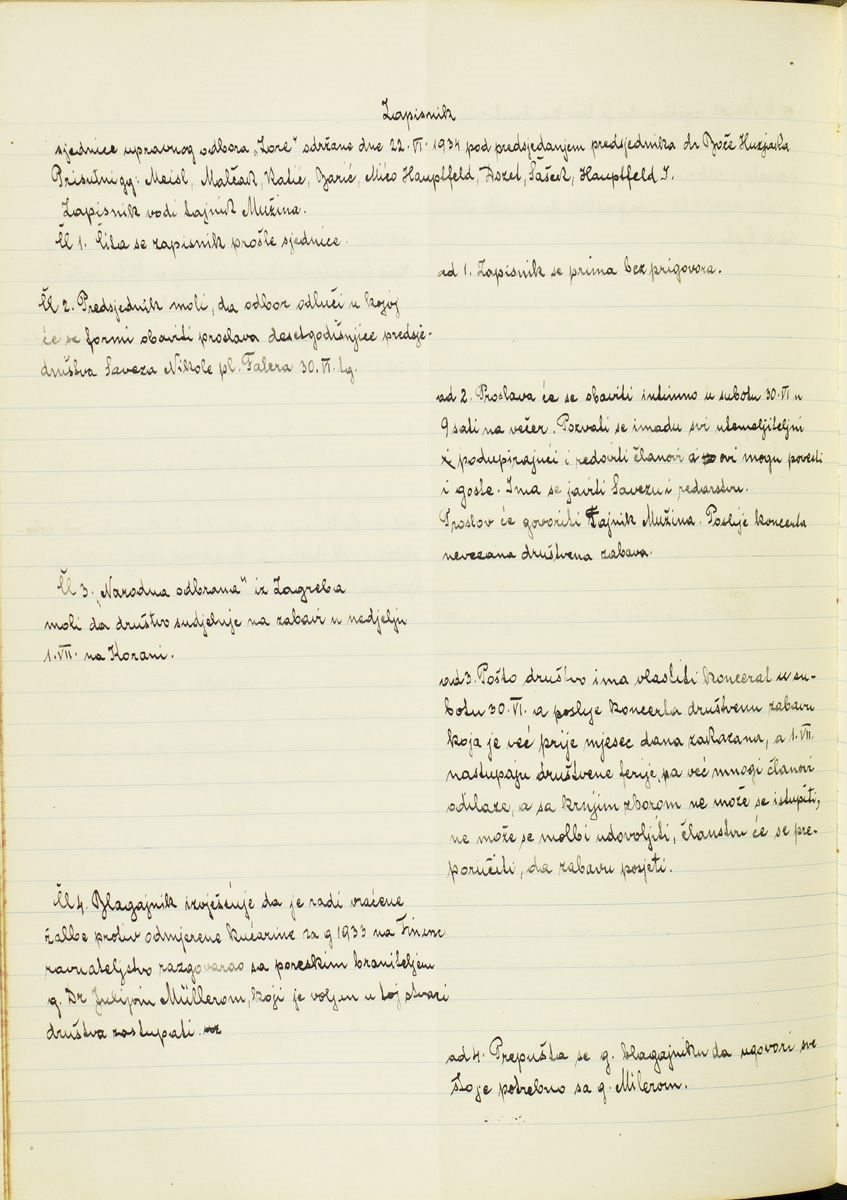 Zapisnik
sjednice upravnog odbora „Zore" održane dne 22.VI.1934 pod predsjedanjem predsjednika dr Bože Huzjaka
Prisutni gg: Meisl, Malčak, Katić, Barić, Mićo Hauptfeld, Aszel, Šašek, Hauptfeld I.
Zapisnik vodi tajnik Mužina.
Čl 1. Čita se zapisnik prošle sjednice.
ad 1. Zapisnik se prima bez prigovora.
Čl 2. Predsjednik moli, da odbor odluči u kojoj
će se formi obaviti proslava desetgodišnjice predsje-
društva Saveza Nikole pl. Falera 30.VI. tg.
ad 2. Proslava će se obaviti intimno u subotu 30.VI u
9 sati na večer. Pozvati se imadu svi utemeljiteljni
podupirajući i redoviti članovi a ovi mogu povesti
i goste. Ima se javiti Savezu i redarstvu.
Proslov će govoriti Tajnik Mužina. Poslije koncerta
nevezana društvena zabava.
Čl 3. „Narodna odbrana" iz Zagreba
moli da društvo sudjeluje na zabavi u nedjelju
1.VII. na Korani.
ad 3. Pošto društvo ima vlastiti koncerat u su-
botu 30.VI. a poslije koncerta društvenu zabavu
koja je već prije mjesec dana zakazana, a 1.VII.
nastupaju društvene ferije, pa već mnogi članovi
odilaze, a sa krnjim zborom ne može se istupiti,
ne može se molbi udovoljiti, članstvu će se pre-
poručiti, da zabavu posjeti.
Čl 4. Blagajnik izvješćuje da je radi vraćene
žalbe protiv odmjerene kućarine za g 1933 na Financ
ravnateljstvo razgovarao sa poreskim braniteljem
g. Dr Julijom Müllerom, koji je voljan u toj stvari
društvo zastupati.
ad 4. Prepušta se g. blagajniku da ugovori sve
što je potrebno sa g. Milerom.